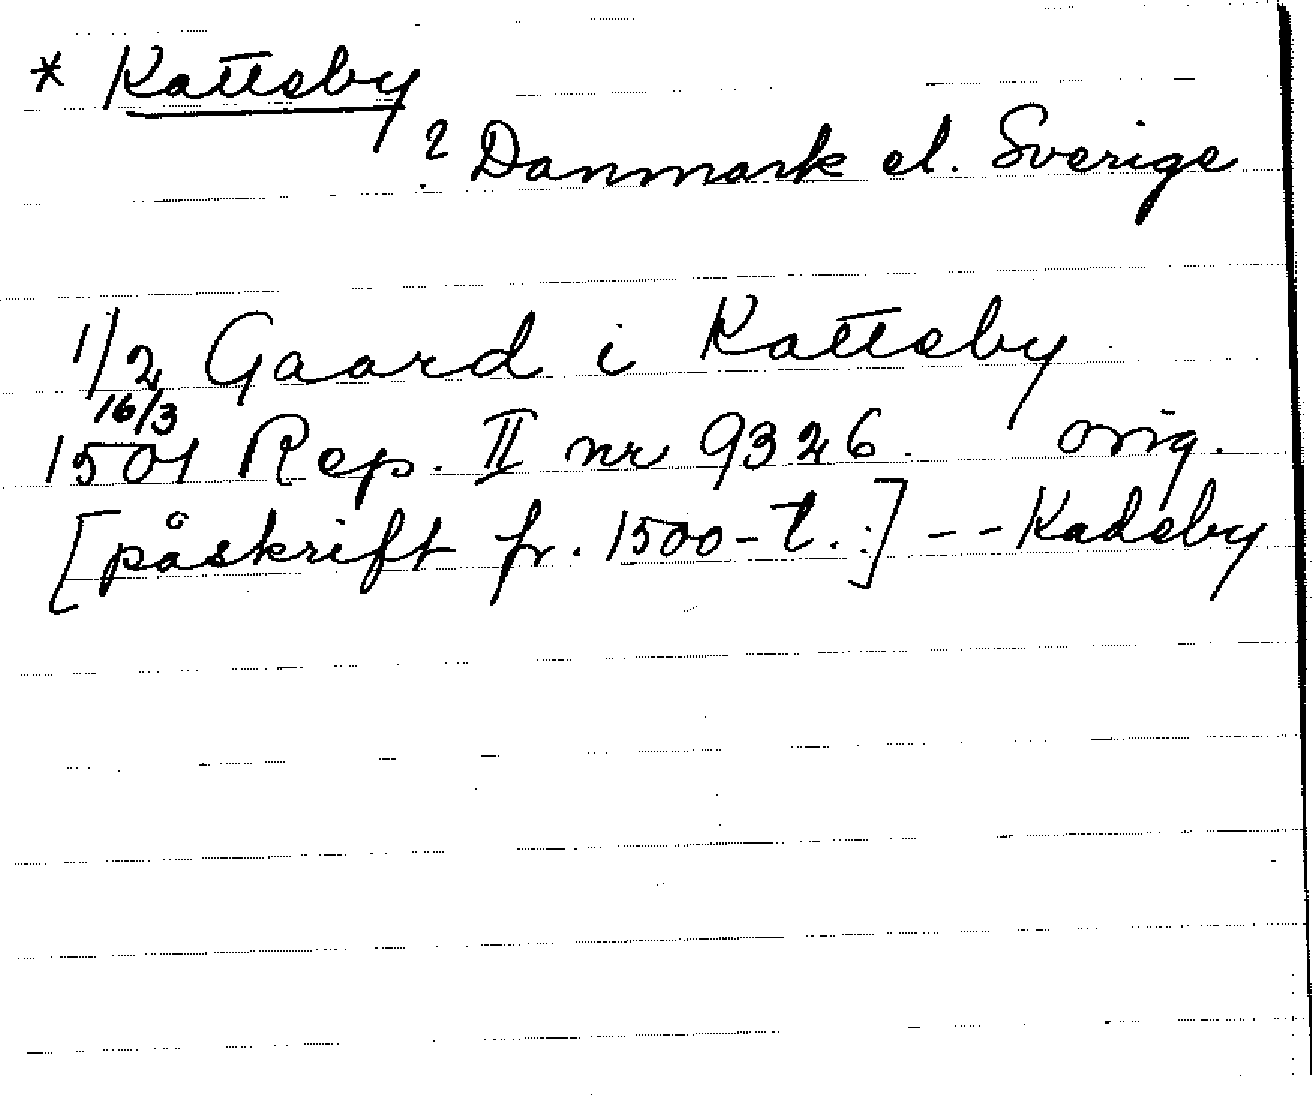 * Kattsby
? Danmark el. Sverige
1/2 Gaard i Kattsby
16/3
1501 Rep. II nr 9326. orig.
[påskrift fr. 1500-t.:] -- Kadsby